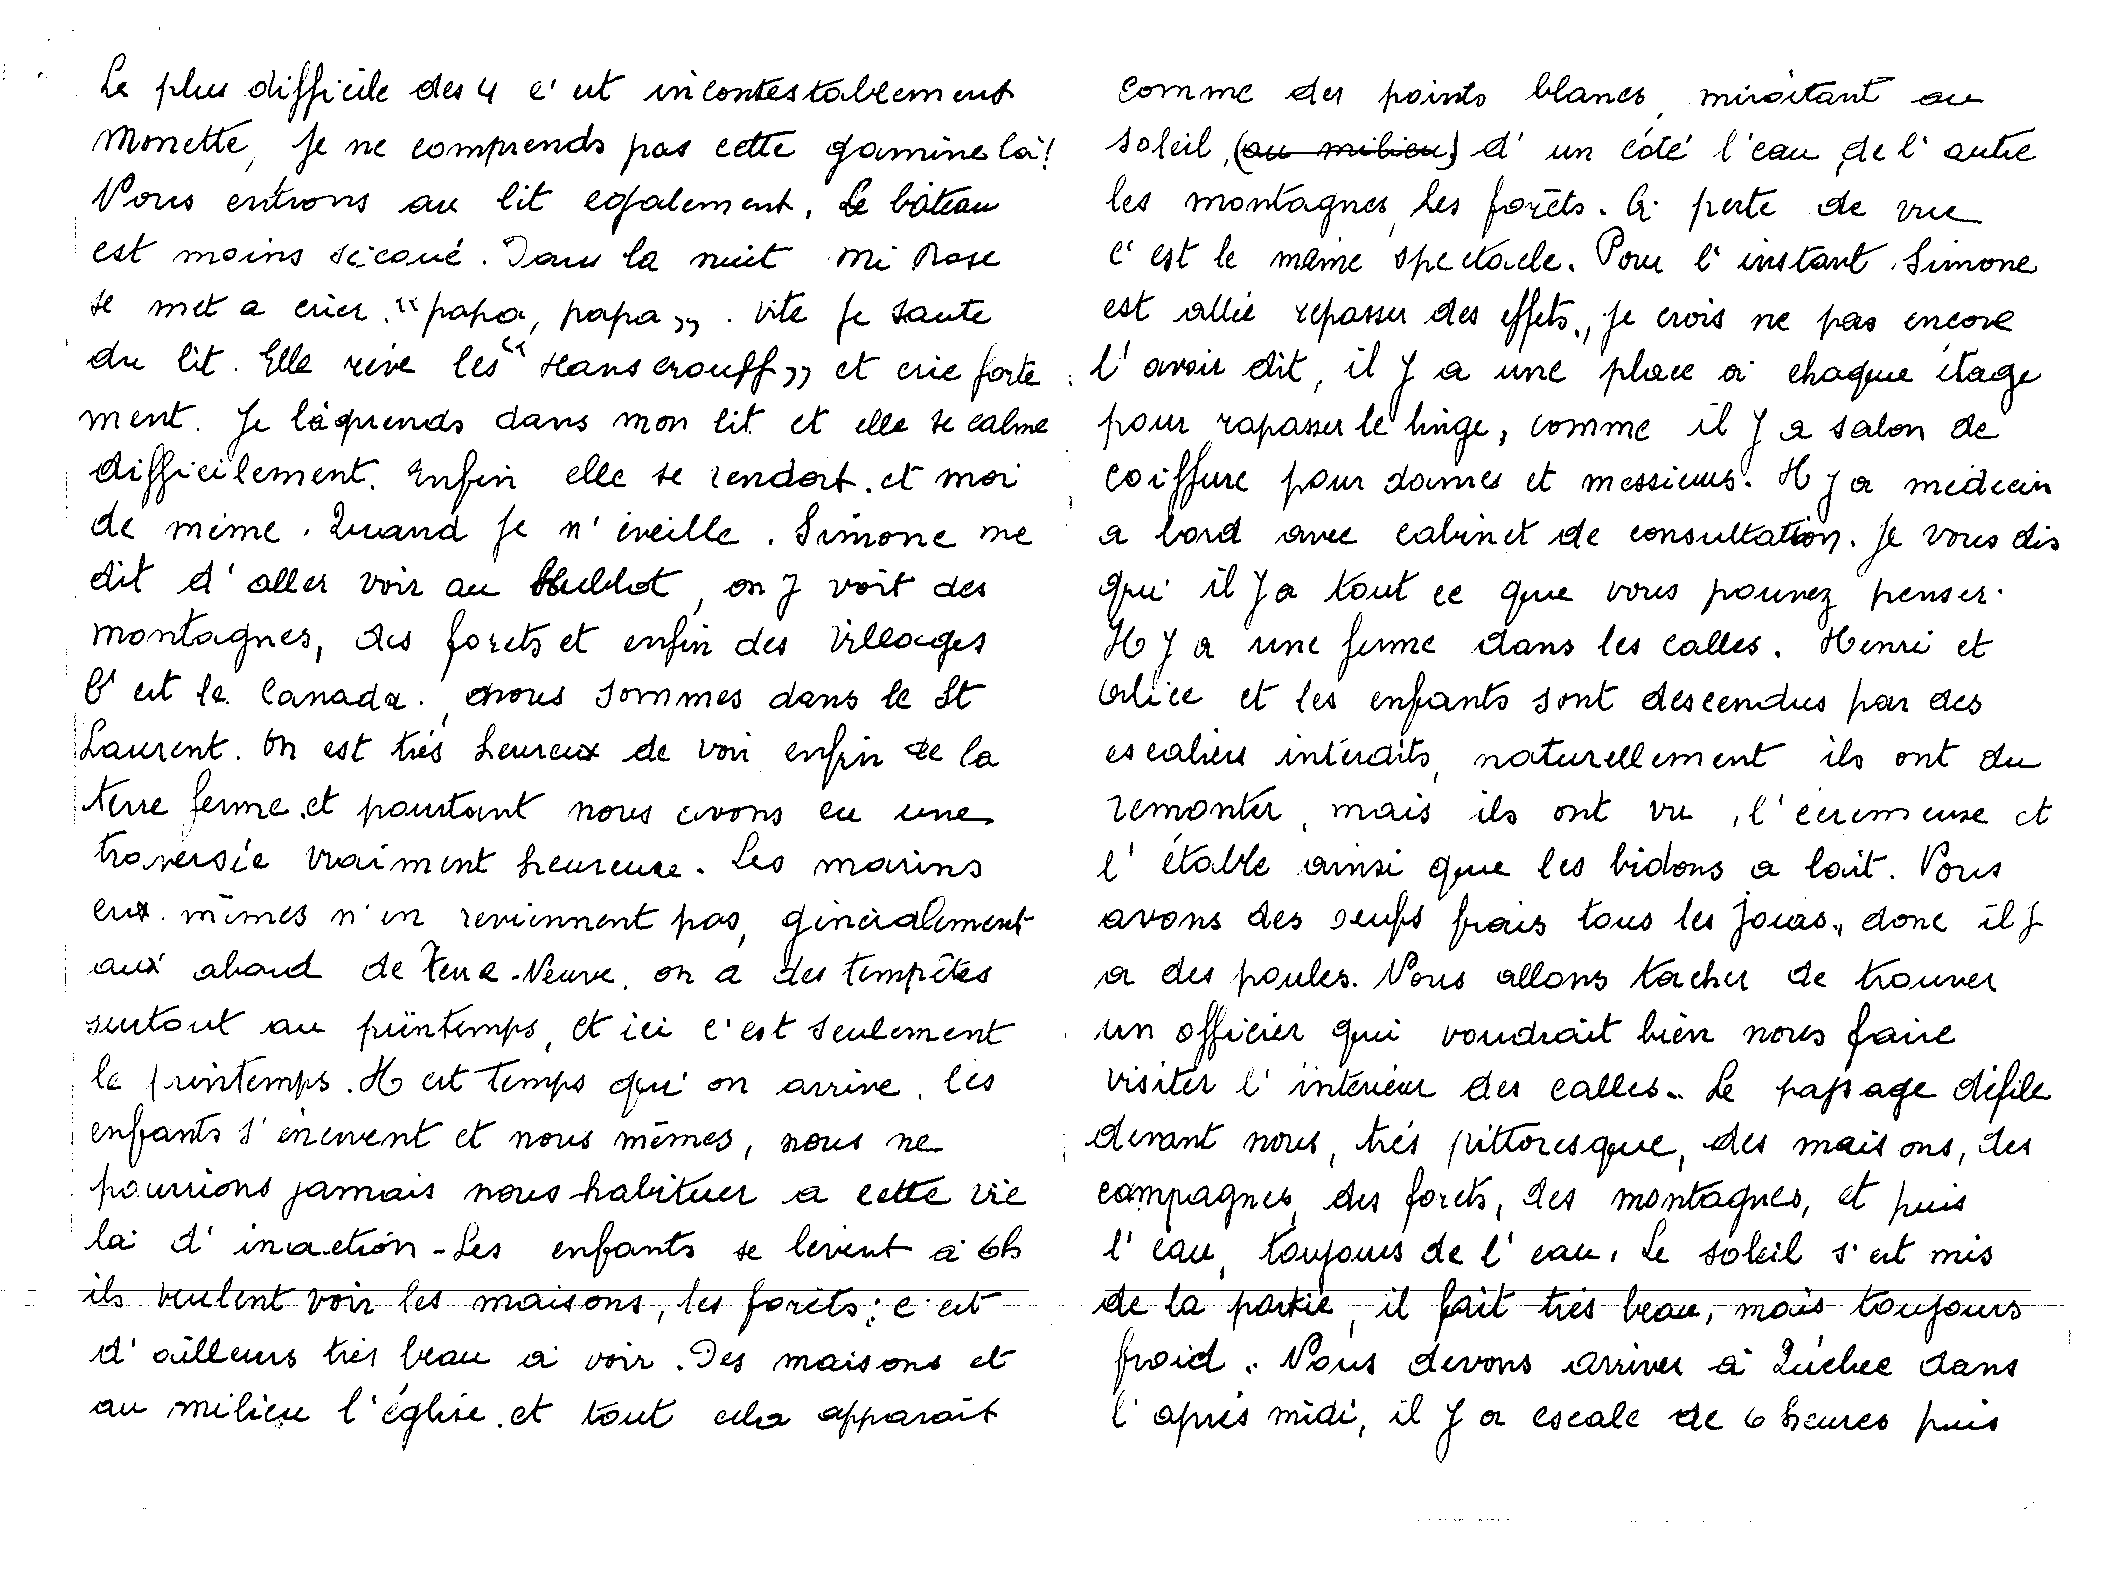 Le plus difficile des 4 c'est incontestablement
Monette, Je ne comprends pas cette gamine là!
Nous entrons au lit egalement. Le bâteau
est moins sécoué. Dans la nuit Mi Rose
se met a crier. "papa, papa". Vite Je saute
du lit. Elle rêve les "Hanscrouff" et crie forte
ment. Je la prends dans mon lit et elle se calme
difficilement. Enfin elle se rendort. et moi
de même. Quand Je m'éveille. Simone me
dit d'aller voir au Hublot, on y voit des
montagnes, des forets et enfin des Villages
C'est le Canada. nous sommes dans le St
Laurent. On est très heureux de voir enfin de la
terre ferme et pourtant nous avons eu une
traversée vraiment heureuse. Les marins
eux. mêmes n'en reviennent pas, généralement
aux abord de Terre-Neuve. on a des tempêtes
surtout au printemps, et ici c'est seulement
le printemps. Il est temps qu'on arrive. les
enfants s'énervent et nous mêmes, nous ne
pourrions jamais nous habituer a cette vie
là d'inaction - Les enfants se lèvent à 6h
ils veulent voir les maisons, les forêts; c'est
d'ailleurs très beau à voir. Des maisons et
au milieu l'église. et tout cela apparaît
comme des points blancs, miroitant au
soleil, (au milieu) d'un côté l'eau, de l'autre
les montagnes, les forêts. A perte de vue
c'est le même spectacle. Pour l'instant Simone
est allée repasser des effets., Je crois ne pas encore
l'avoir dit, il y a une place à chaque étage
pour rapasser le linge, comme il y a salon de
coiffure pour dames et messieurs. Il y a médecin
a bord avec cabinet de consultation. Je vous dis
qu'il y a tout ce que vous pouvez penser.
Il y a une ferme dans les calles. Henri et
Alice et les enfants sont descendus par des
escaliers interdits, naturellement ils ont du
remonter, mais ils ont vu, l'écrémeuse et
l'étable ainsi que les bidons a lait. Nous
avons des oeufs frais tous les jours., donc il y
a des poules. Nous allons tacher de trouver
un officier qui voudrait bien nous faire
visiter l'intérieur des calles.. Le paysage défile
devant nous, très pittoresque, des maisons, des
campagnes, des forets, des montagnes, et puis
l'eau, toujours de l'eau. Le soleil s'est mis
de la partie, il fait très beau, mais toujours
froid. Nous devons arriver à Québec dans
l'après midi, il y a escale de 6 heures puis